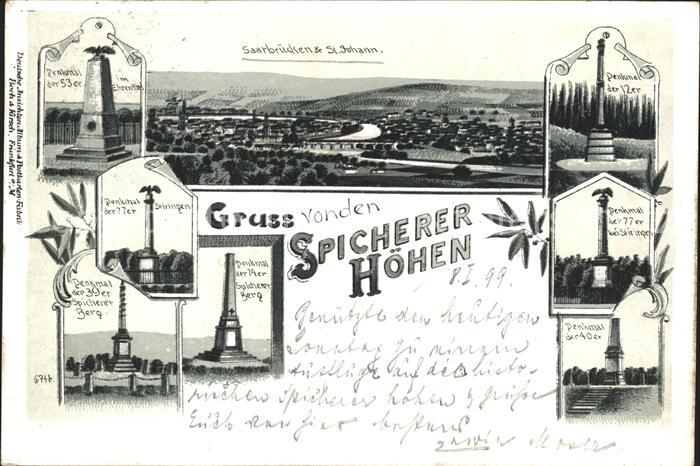 Saarbrücken & St. Johann.
Denkmal im
der 53er Ehrenthal
Denkmal
der 12er
Deutsche Ansichten-Album & Postkarten-Fabrik
Bock & Kirsch, Frankfurt a/M
Denkmal
der 77er Stiringen
Denkmal
der 77er
bei Stiringen
Gruss von den
SPICHERER
HÖHEN
Denkmal
der 39er
Spicherer
Berg
Denkmal
der 74er
Spicherer
Berg
Denkmal
der 40er
674b.
8.I.99
Benützte den heutigen
Sonntag zu einem
Ausfluge auf die histo-
rischen Spicherer höhen & grüße
Euch von hier bestens
Moser